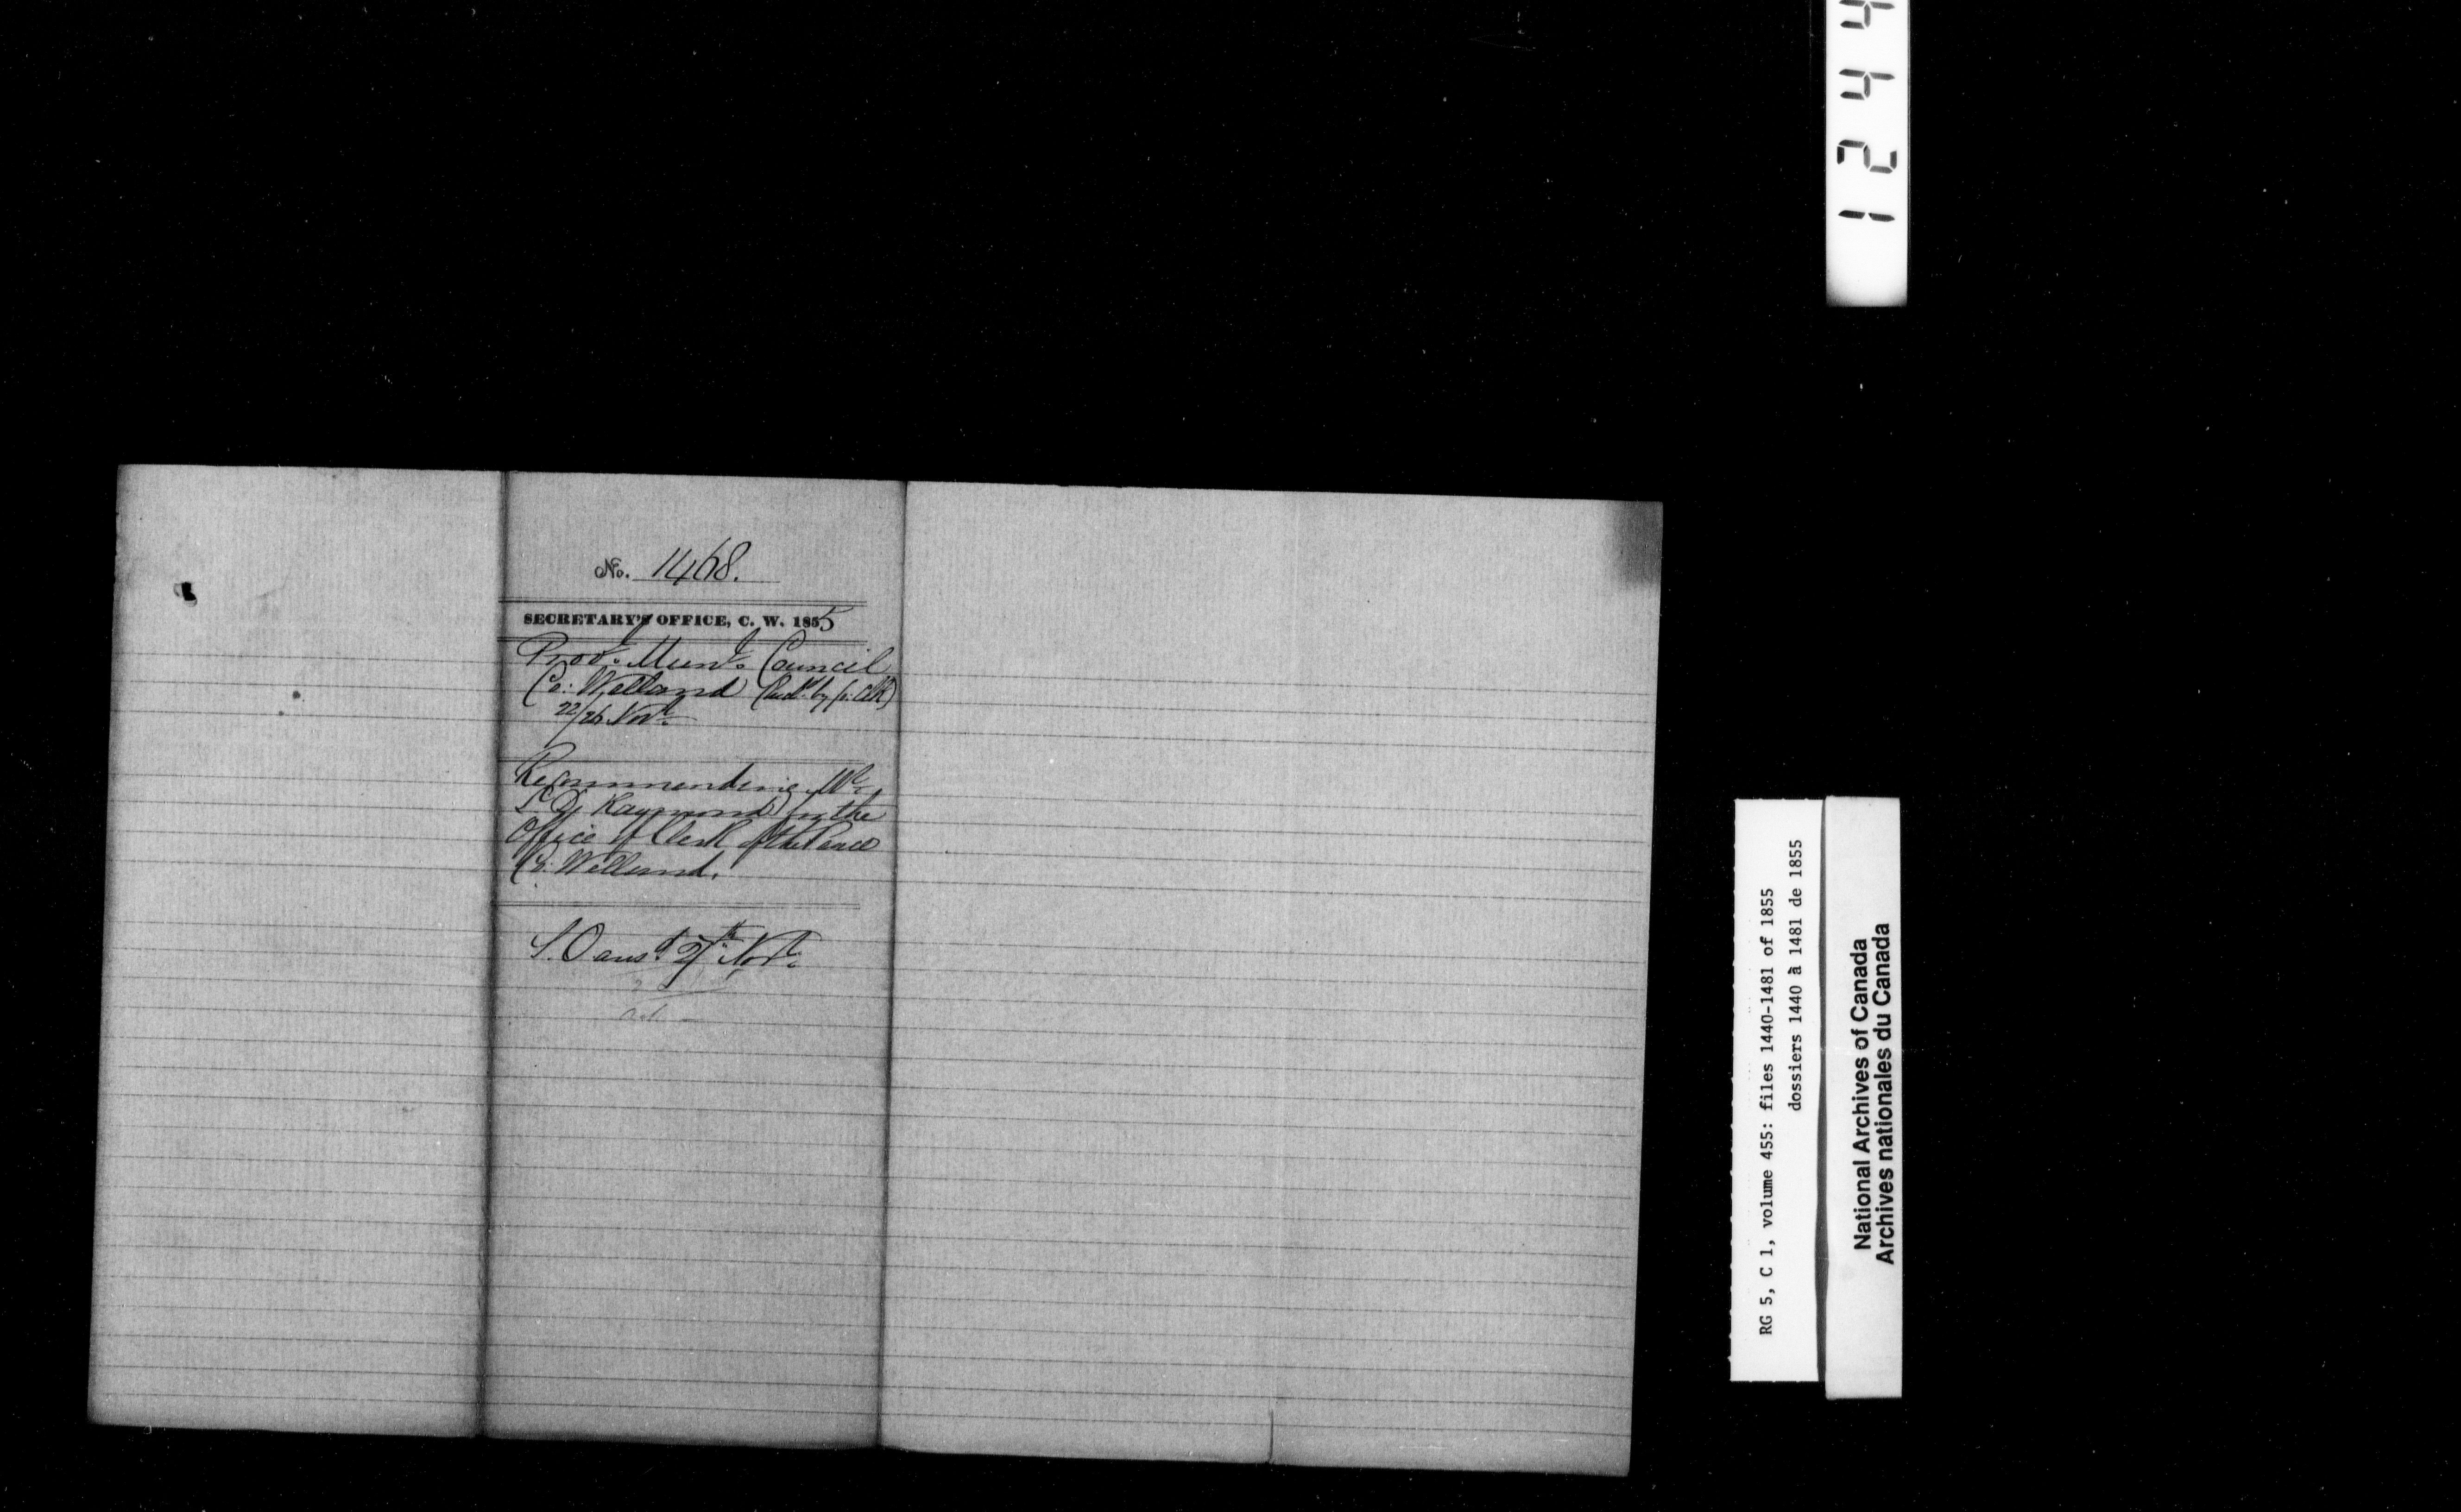 No. 1468.
SECRETARY'S OFFICE, C. W. 1855
Prov.l Mun.l Council
Co: Welland (Rec.d by p. Clk)
22/26 Nov.r
Recommending Mr.
L. D. Raymond for the
Office of Clerk of the Peace
Co: Welland.
L. O ans.d 27th Nov.r
1244
RG 5, C 1, volume 455: files 1440-1481 of 1855
dossiers 1440 à 1481 de 1855
National Archives of Canada
Archives nationales du Canada